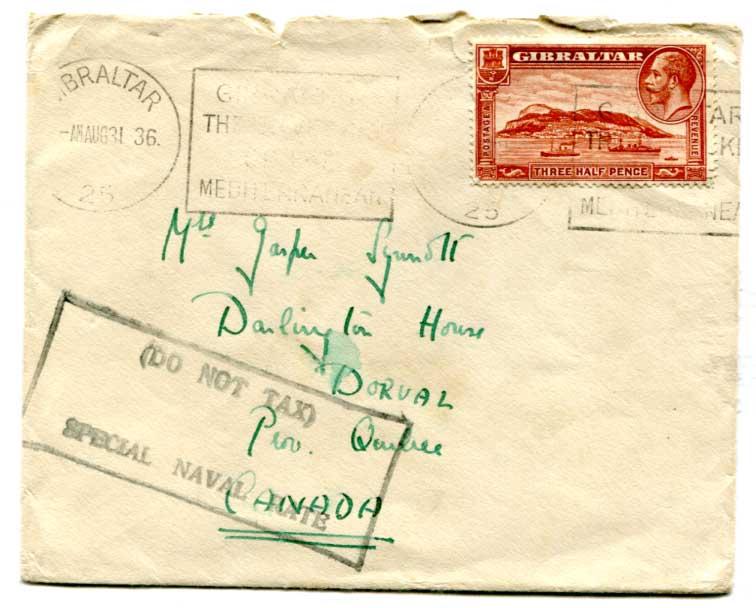 GIBRALTAR
-AM AUG 31 36.
25
G
TH
MEDITERRANEAN
25
GIBRALTAR
POSTAGE &
REVENUE
THREE HALF PENCE
G TAR
TH CK
MEDITE NEA
Mrs Jasper Synnott
Darlington House
DORVAL
Prov. Quebec
CANADA
(DO NOT TAX)
SPECIAL NAVAL RATE